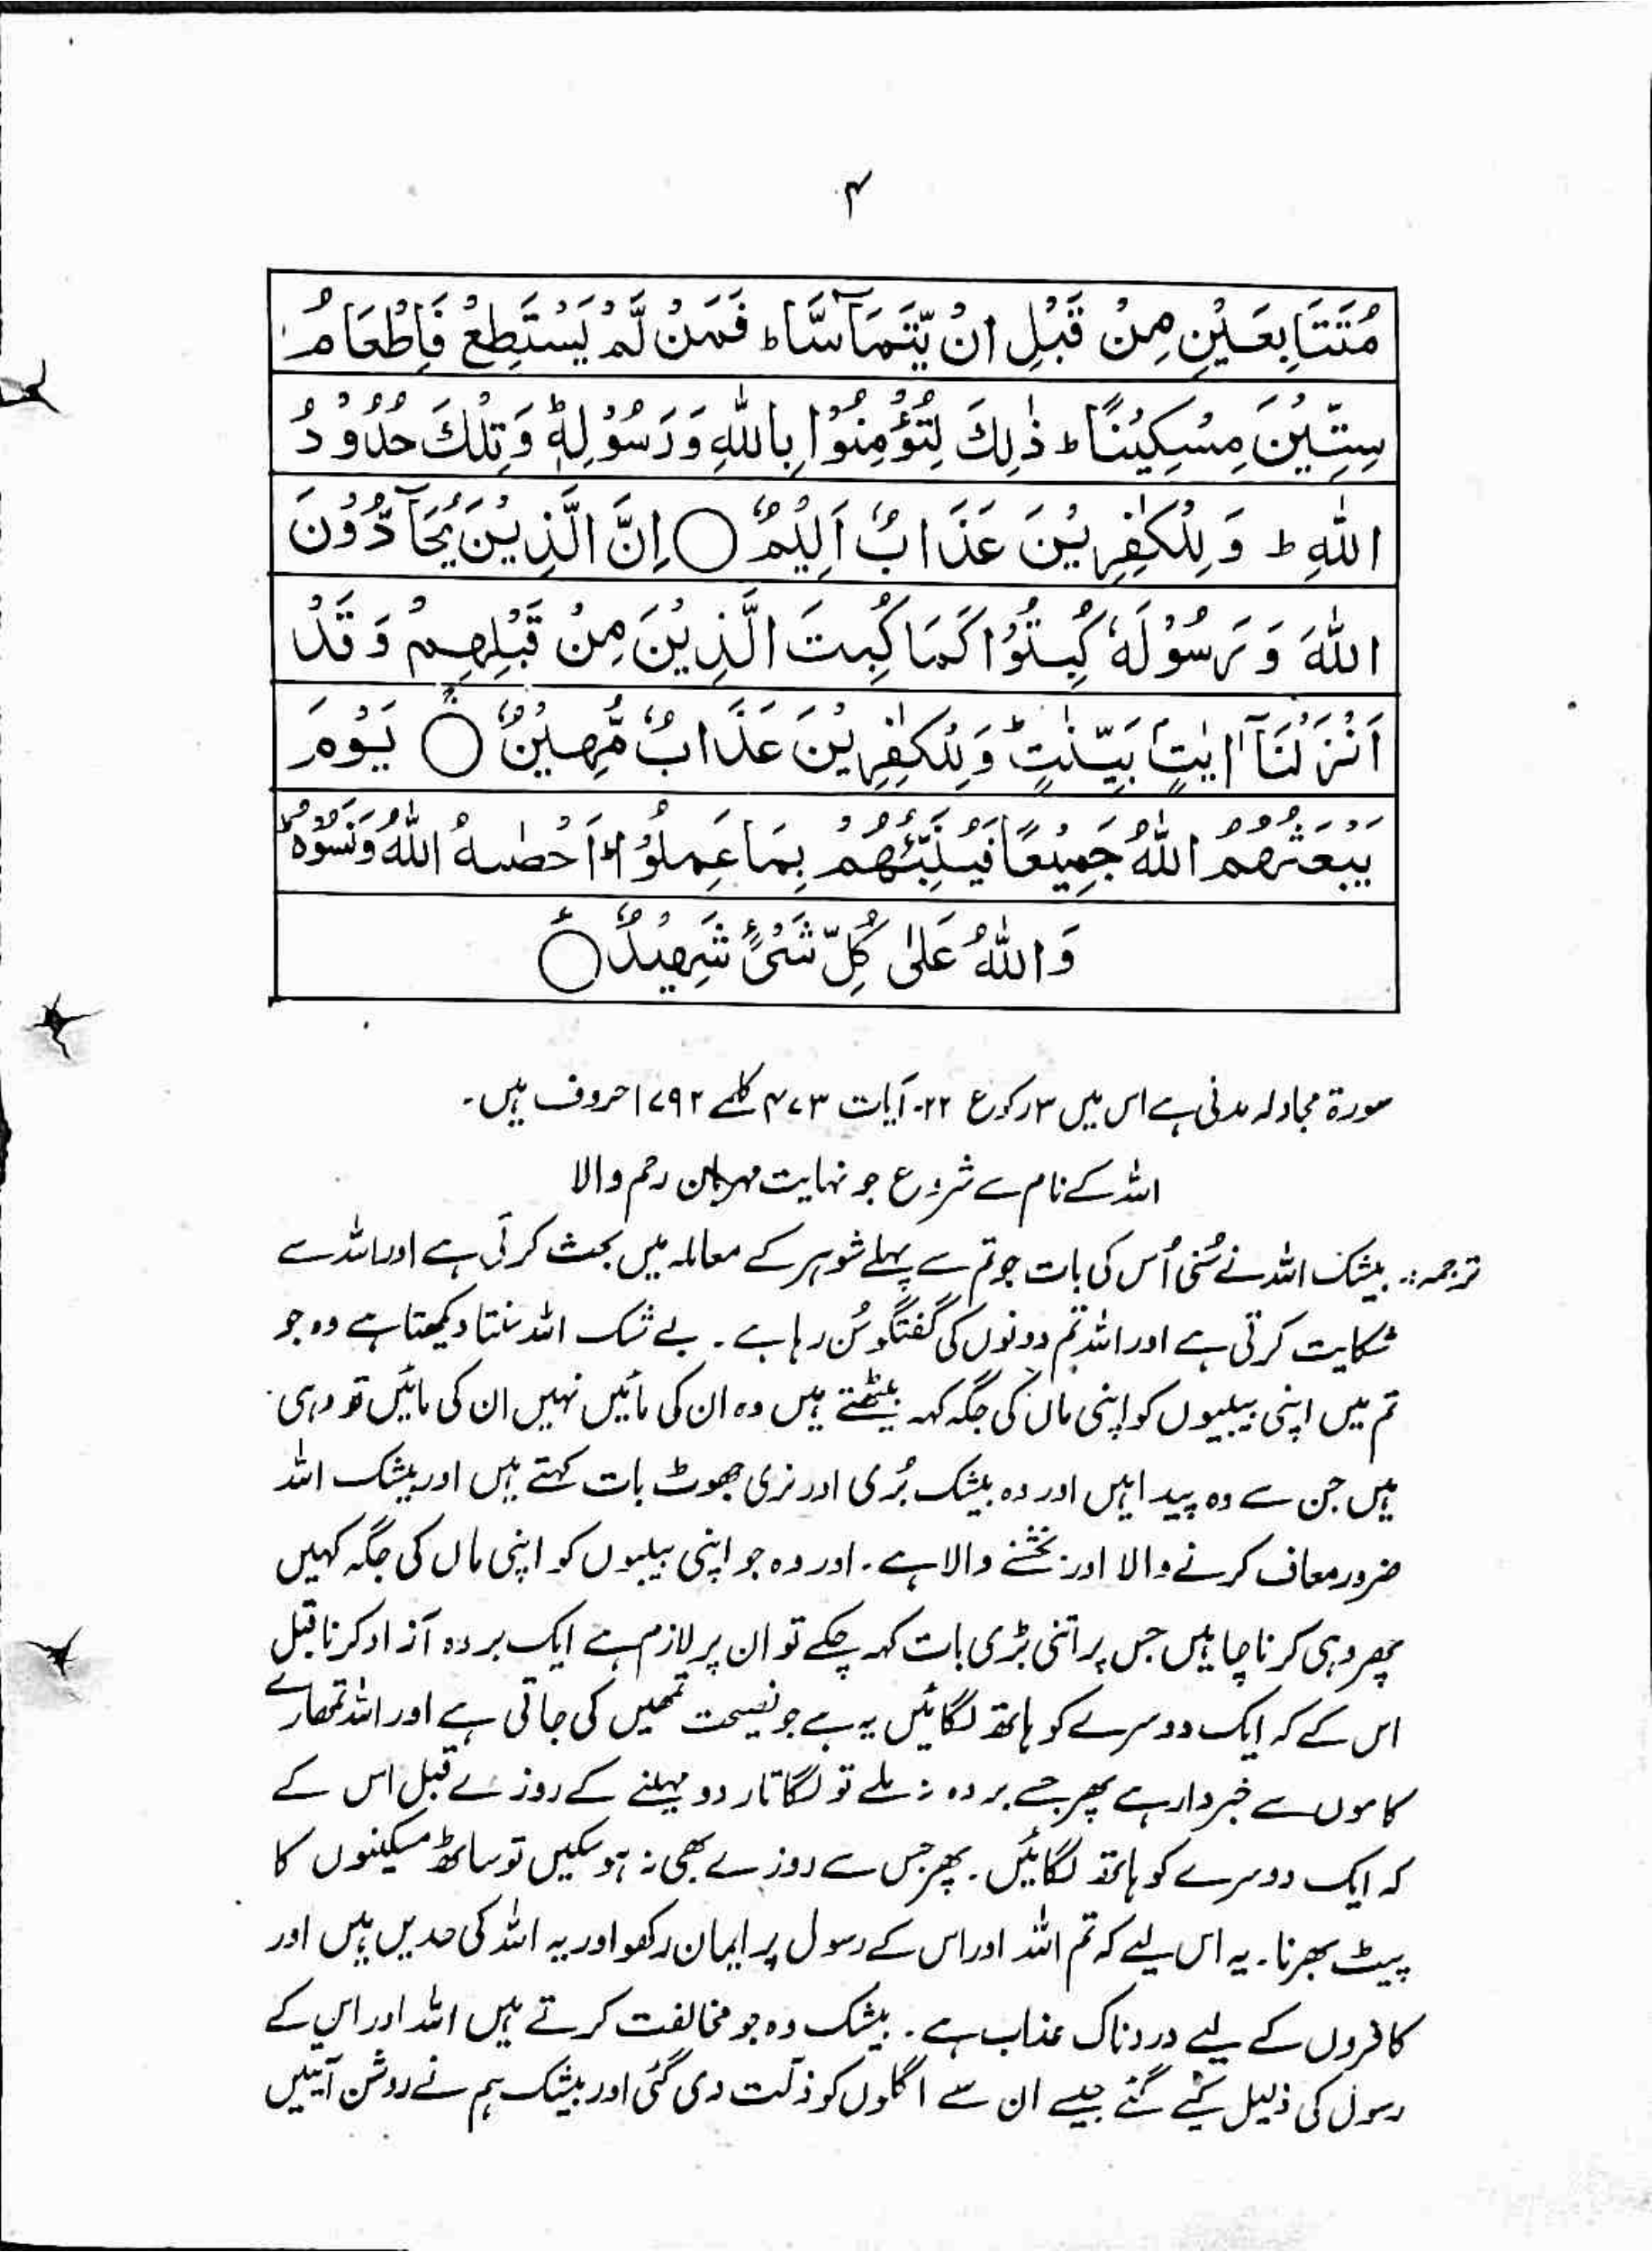 ۴
مُتَتَابِعَيْنِ مِنْ قَبْلِ اَنْ يَّتَمَآسَّا ط فَمَنْ لَّمْ يَسْتَطِعْ فَاِطْعَامُ
سِتِّيْنَ مِسْكِيْنًا ط ذٰلِكَ لِتُؤْمِنُوْا بِاللّٰهِ وَرَسُوْلِهٖ ط وَتِلْكَ حُدُوْدُ
اللّٰهِ ط وَ لِلْكٰفِرِيْنَ عَذَابٌ اَلِيْمٌ ○ اِنَّ الَّذِيْنَ يُحَآدُّوْنَ
اللّٰهَ وَ رَسُوْلَهٗ كُبِتُوْا كَمَا كُبِتَ الَّذِيْنَ مِنْ قَبْلِهِمْ وَ قَدْ
اَنْزَلْنَآ اٰيٰتٍۭ بَيِّنٰتٍ ط وَ لِلْكٰفِرِيْنَ عَذَابٌ مُّهِيْنٌ ○ يَوْمَ
يَبْعَثُهُمُ اللّٰهُ جَمِيْعًا فَيُنَبِّئُهُمْ بِمَا عَمِلُوْا ط اَحْصٰىهُ اللّٰهُ وَنَسُوْهُ ط
وَ اللّٰهُ عَلٰى كُلِّ شَىْءٍ شَهِيْدٌ ○
سورۃ مجادلہ مدنی ہے اس میں ۳ رکوع ۲۲۔ آیات ۴۷۳ کلمے ۱۷۹۲ حروف ہیں۔
اللہ کے نام سے شروع جو نہایت مہربان رحم والا
ترجمہ:۔ بیشک اللہ نے سُنی اُس کی بات جو تم سے پہلے شوہر کے معاملہ میں بحث کرتی ہے اور اللہ سے
شکایت کرتی ہے اور اللہ تم دونوں کی گفتگو سُن رہا ہے۔ بے شک اللہ سنتا دیکھتا ہے وہ جو
تم میں اپنی بیبیوں کو اپنی ماں کی جگہ کہہ بیٹھتے ہیں وہ ان کی مائیں نہیں ان کی مائیں تو وہی
ہیں جن سے وہ پیدا ہیں اور وہ بیشک بُری اور نری جھوٹ بات کہتے ہیں اور بیشک اللہ
ضرور معاف کرنے والا اور بخشنے والا ہے۔ اور وہ جو اپنی بیبیوں کو اپنی ماں کی جگہ کہیں
پھر وہی کرنا چاہیں جس پر اتنی بڑی بات کہہ چکے تو ان پر لازم ہے ایک بردہ آزاد کرنا قبل
اس کے کہ ایک دوسرے کو ہاتھ لگائیں یہ ہے جو نصیحت تمھیں کی جاتی ہے اور اللہ تمھارے
کاموں سے خبردار ہے پھر جسے بردہ نہ ملے تو لگاتار دو مہینے کے روزے قبل اس کے
کہ ایک دوسرے کو ہاتھ لگائیں۔ پھر جس سے روزے بھی نہ ہو سکیں تو ساٹھ مسکینوں کا
پیٹ بھرنا۔ یہ اس لیے کہ تم اللہ اور اس کے رسول پر ایمان رکھو اور یہ اللہ کی حدیں ہیں اور
کافروں کے لیے دردناک عذاب ہے۔ بیشک وہ جو مخالفت کرتے ہیں اللہ اور اس کے
رسول کی ذلیل کیے گئے جیسے ان سے اگلوں کو ذلّت دی گئی اور بیشک ہم نے روشن آیتیں